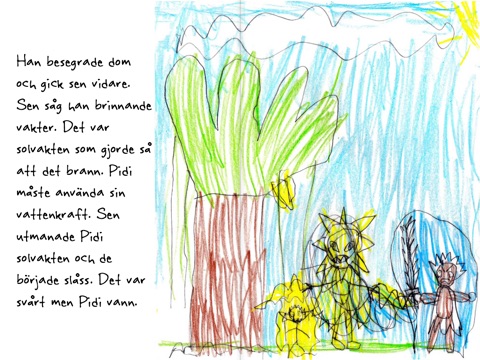 Han besegrade dom
och gick sen vidare.
Sen såg han brinnande
vakter. Det var
solvakten som gjorde så
att det brann. Pidi
måste använda sin
vattenkraft. Sen
utmanade Pidi
solvakten och de
började slåss. Det var
svårt men Pidi vann.